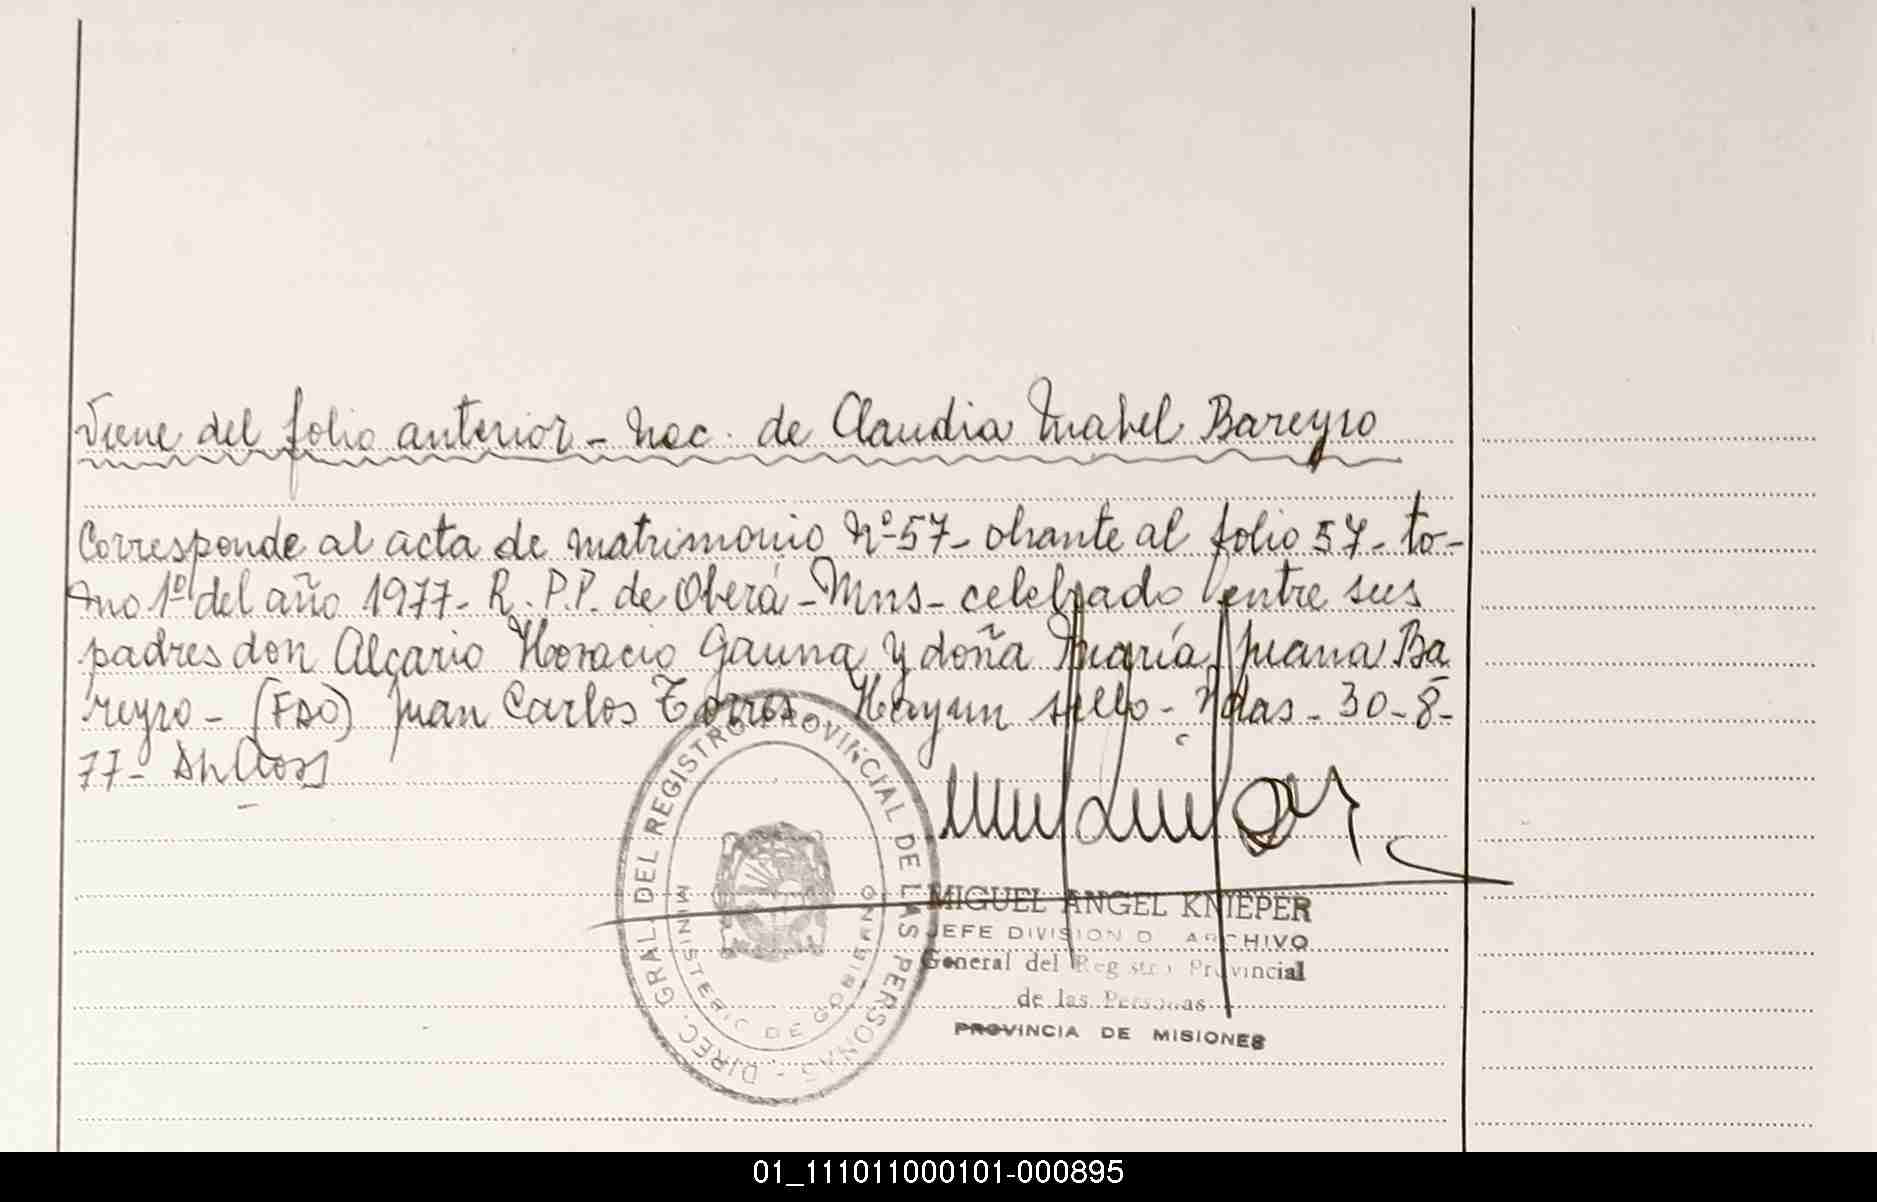 Viene del folio anterior - Nac. de Claudia Mabel Bareyro
Corresponde al acta de matrimonio Nº 57 - obrante al folio 57 - to-
mo 1º del año 1977 - R.P.P. de Oberá - Mns - celebrado entre sus
padres don Alcario Horacio Gauna y doña María Juana Ba
reyro - (FDO) Juan Carlos Torres Hay un sello - Pdas - 30-8-
77-
DIREC. GRAL. DEL REGISTRO PROVINCIAL DE LAS PERSONAS
MINISTERIO DE GOBIERNO
MIGUEL ANGEL KNIEPER
JEFE DIVISION D ARCHIVO
General del Registro Provincial
de las Personas
PROVINCIA DE MISIONES
01_111011000101-000895